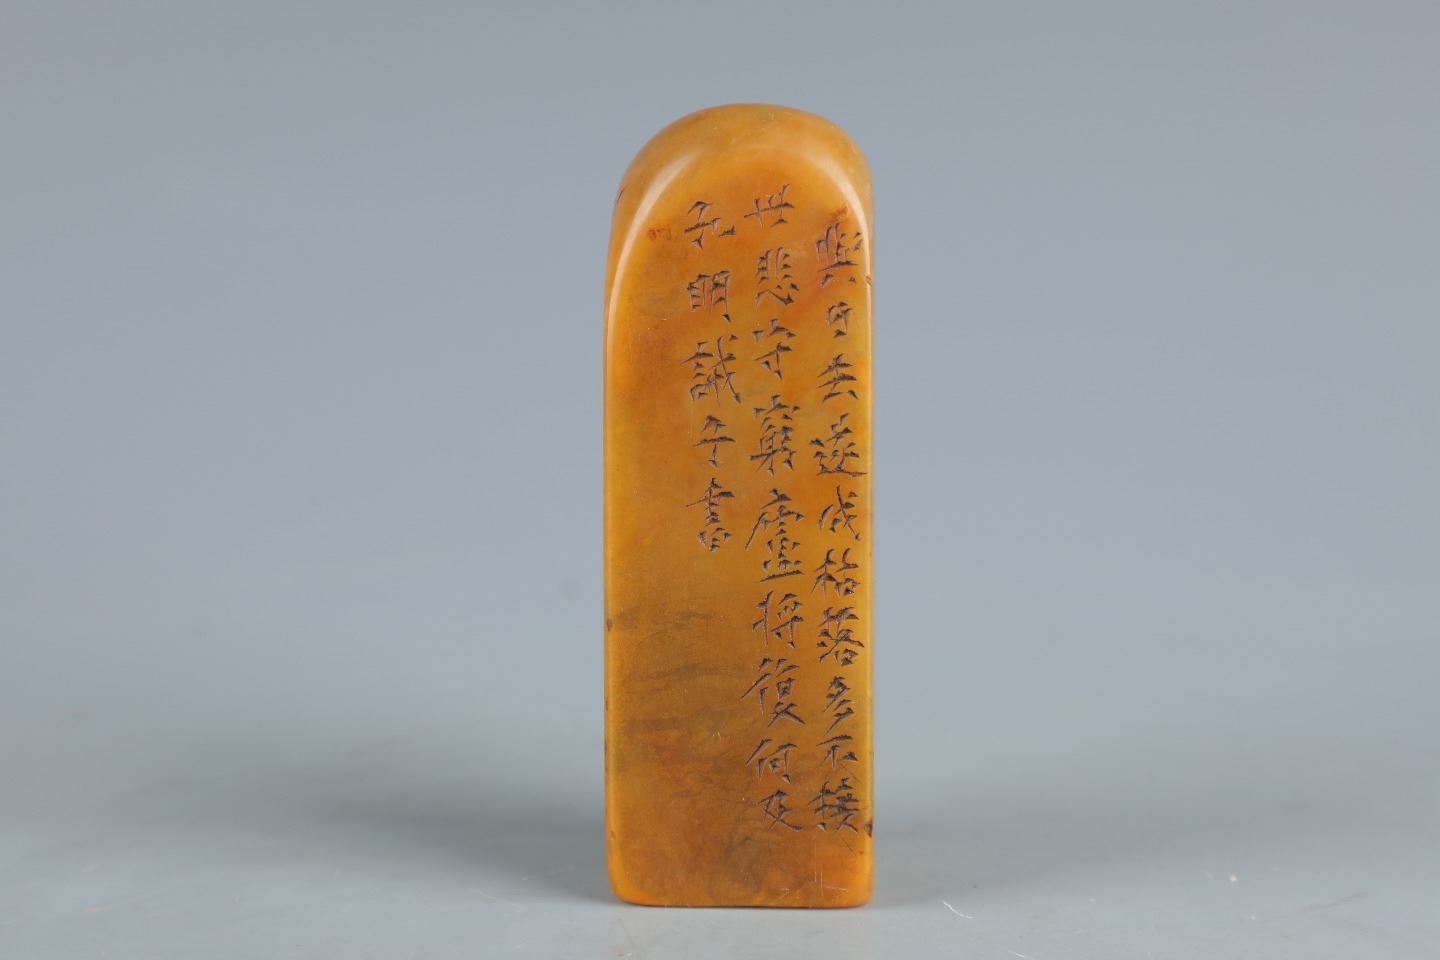 與日去遂成枯落多不接
世悲守窮廬將復何及
孔明誡子書